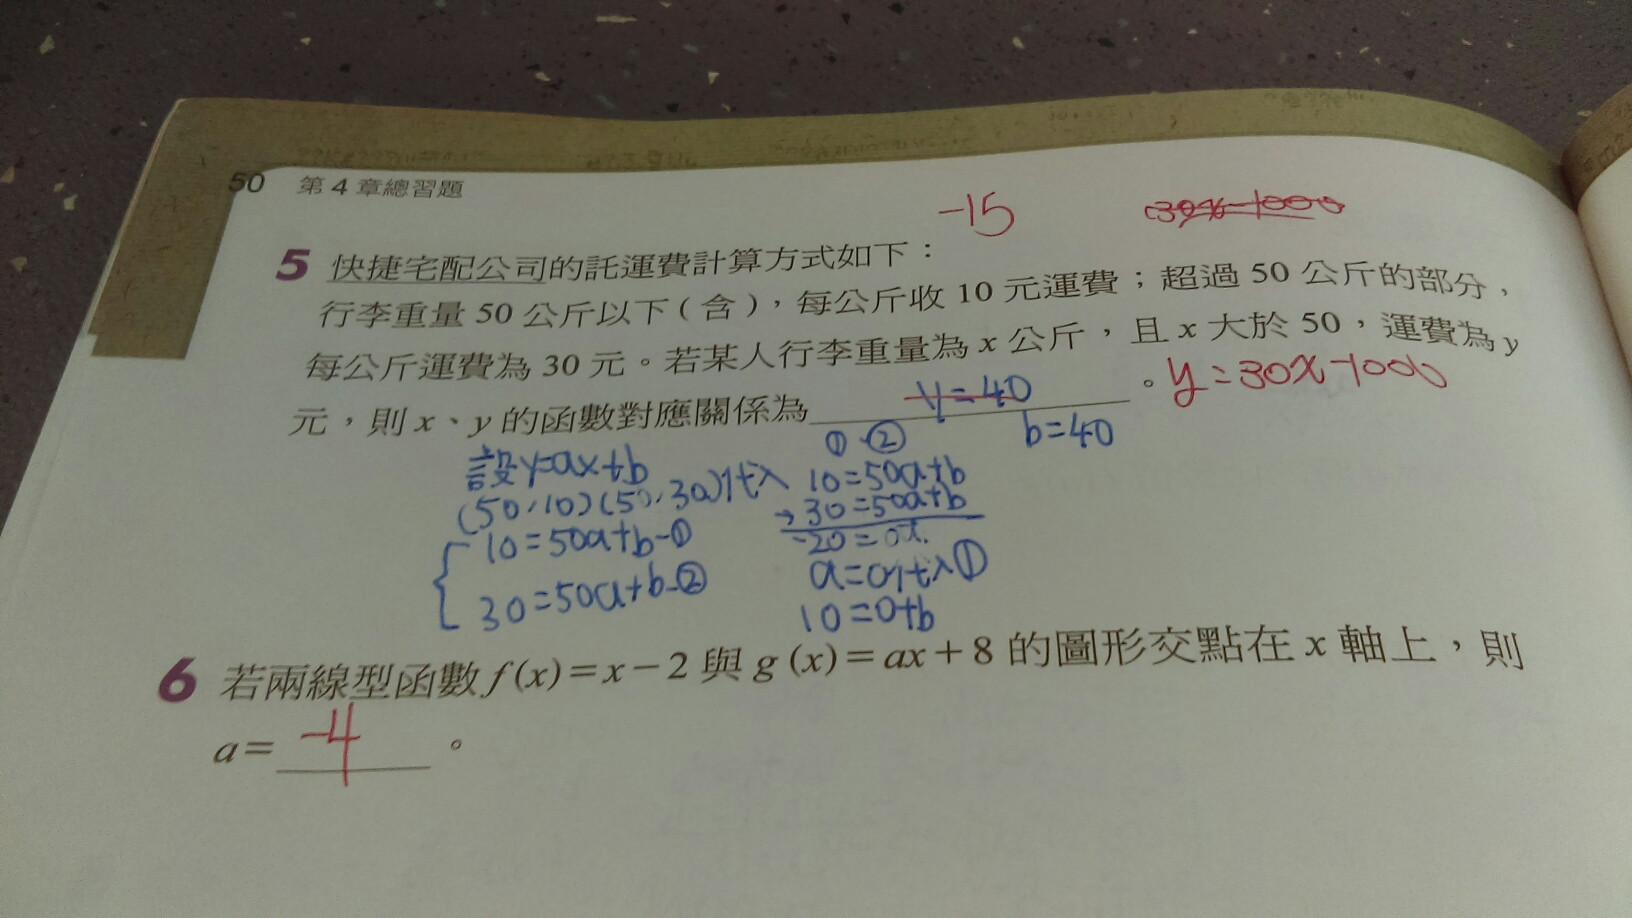 50 第4章總習題
-15
5 快捷宅配公司的託運費計算方式如下：
行李重量 50 公斤以下（含），每公斤收 10 元運費；超過 50 公斤的部分，
每公斤運費為 30 元。若某人行李重量為 x 公斤，且 x 大於 50，運費為 y
元，則 x、y 的函數對應關係為 y=40 。 y=30x-1000
① ② b=40
設y=ax+b
(50,10)(50,30)代入
10=50a+b-①
30=50a+b-②
10=50a+b
30=50a+b
-20=0
a=0代入①
10=0+b
6 若兩線型函數 f(x)=x-2 與 g(x)=ax+8 的圖形交點在 x 軸上，則
a= -4 。